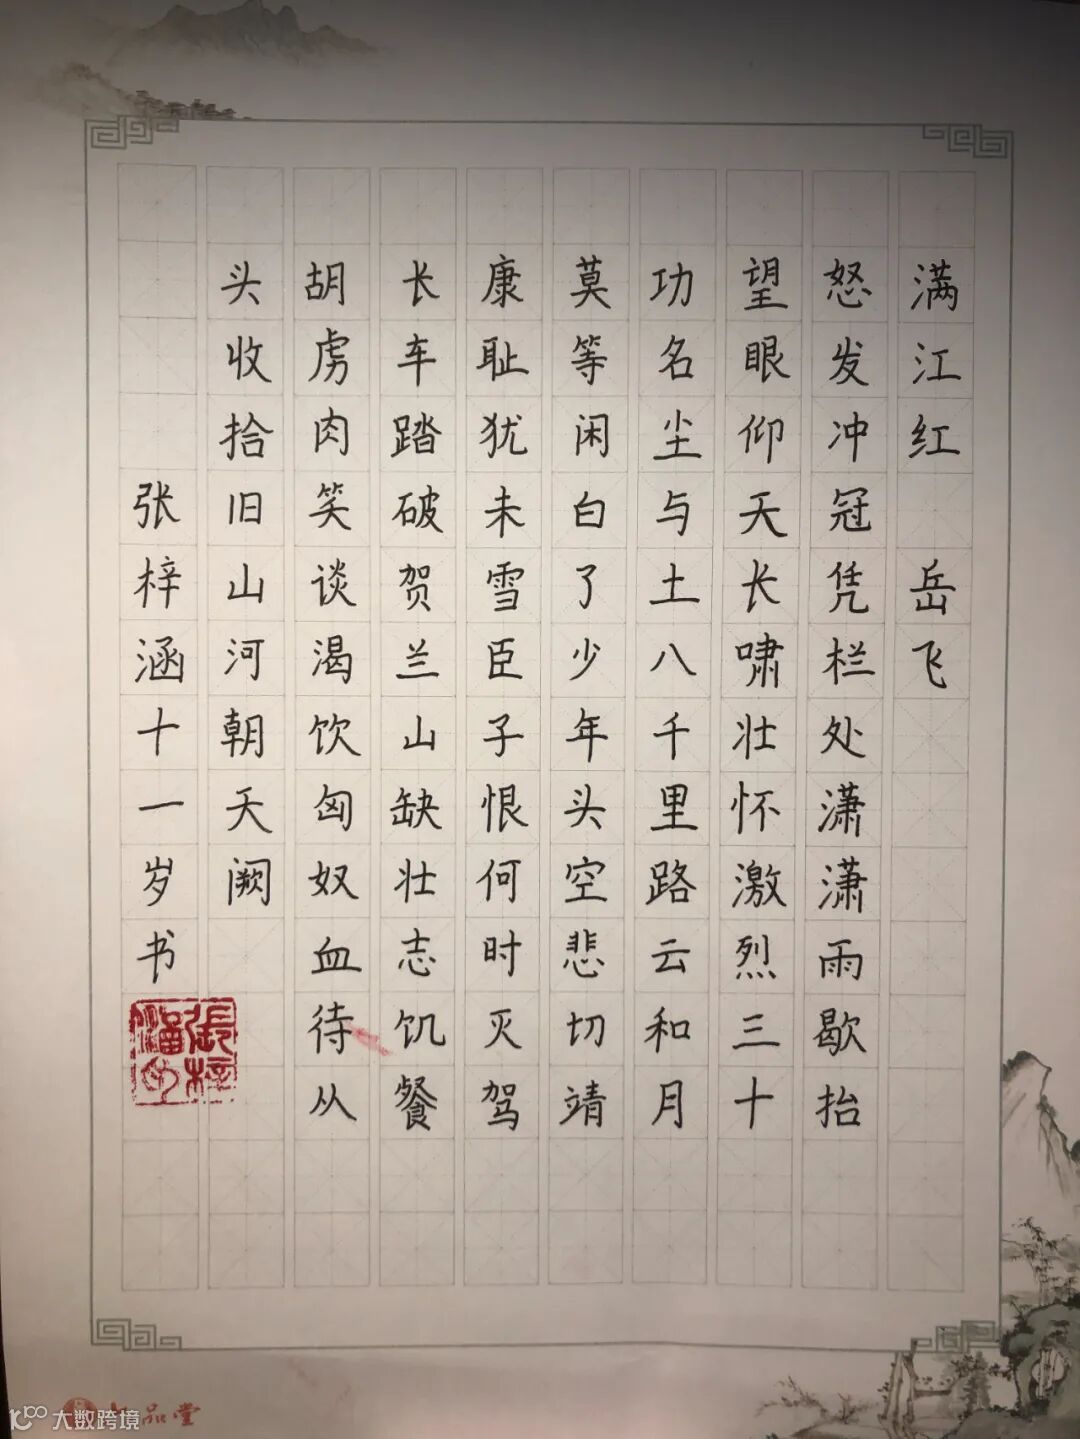 满江红 岳飞
怒发冲冠凭栏处潇潇雨歇抬
望眼仰天长啸壮怀激烈三十
功名尘与土八千里路云和月
莫等闲白了少年头空悲切靖
康耻犹未雪臣子恨何时灭驾
长车踏破贺兰山缺壮志饥餐
胡虏肉笑谈渴饮匈奴血待从
头收拾旧山河朝天阙
张梓涵十一岁书
大数跨境